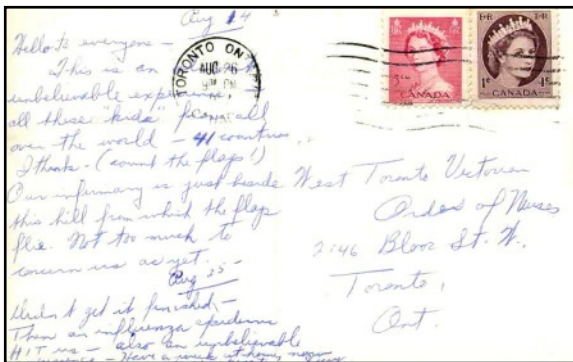 Aug 14
Hello to everyone –
This is an
unbelievable experience
all these "kids" from all
over the world – 41 countries
I think – (count the flags!)
Our infirmary is just beside
this hill from which the flags
flie. Not too much to
concern us as yet.
Aug 25 –
Didn't get it finished –
Then an influenza epidemic
HIT us – also an unbelievable
– Have a week at home, now
TORONTO ONTARIO
AUG 26
PM
CANADA
CANADA
E II R
1¢ 1¢
CANADA
West Toronto Victorian
Order of Nurses
Bloor St. W.,
Toronto,
Ont.